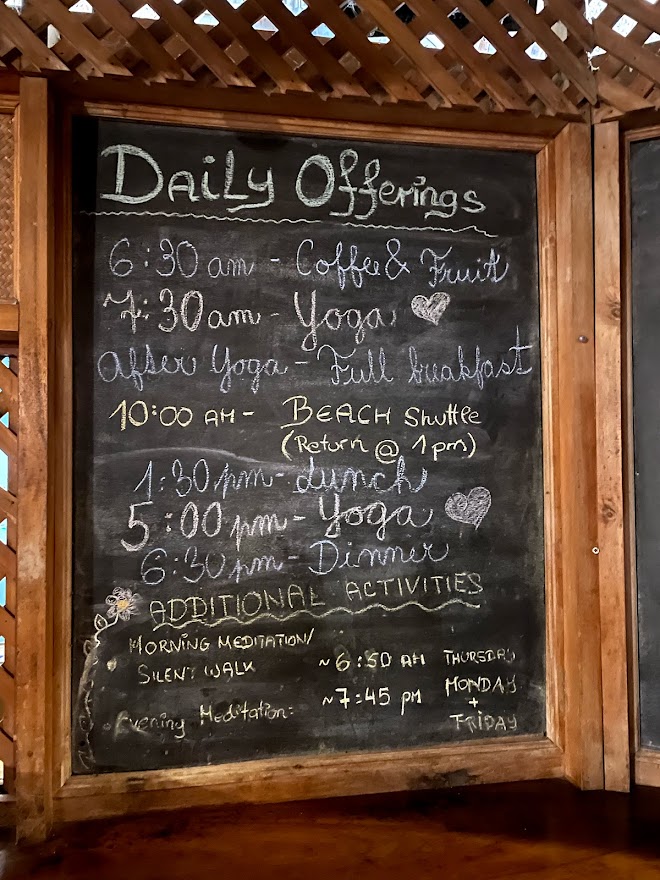 Daily Offerings
6:30 am - Coffee & Fruit
7:30 am - Yoga
After Yoga - Full breakfast
10:00 AM - BEACH Shuttle
(Return @ 1 pm)
1:30 pm - Lunch
5:00 pm - Yoga
6:30 pm - Dinner
ADDITIONAL ACTIVITIES
MORNING MEDITATION/
SILENT WALK ~6:50 AM THURSDAY
Evening Meditation: ~7:45 PM MONDAY
+
FRIDAY